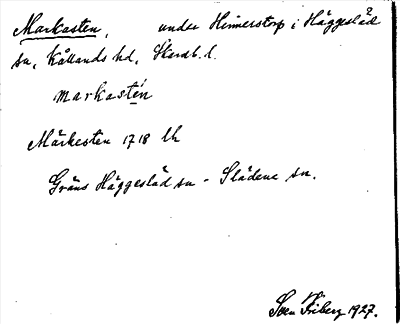 Markasten, under Heimerstorp i Häggesled
sn, Kållands hd, Skarab. l.
markastén
Märkesten 1718 Lh
Gräns Häggesled sn - Slädene sn.
Sven Friberg 1927.